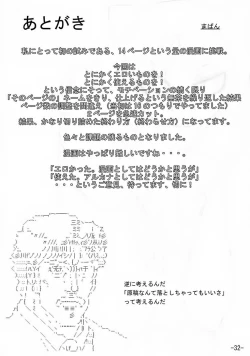 あとがき
まばん
私にとって初の試みである、14ページという量の漫画に挑戦。
今回は
とにかくエロいものを！
とにかく使えるものを！
という信念にそって、モチベーションの続く限り
「そのページの」ネームをきり、仕上げるという無茶を繰り返した結果
ページ数の調整を間違え（当初は16のつもりでやってました）
2ページを急遽カット。
結果、かなり切り詰めた終わり方（終わらせ方）になってます。
色々と課題の残るものとなりました。
漫画はやっぱり難しいですね・・・。
「エロかった。漫画としてはどうかと思うが」
「使えた。アルカナとしてはどうかと思うが」
・・・というご意見、待ってます。特に！
逆に考えるんだ
「原稿なんて落としちゃってもいいさ」
って考えるんだ
-32-